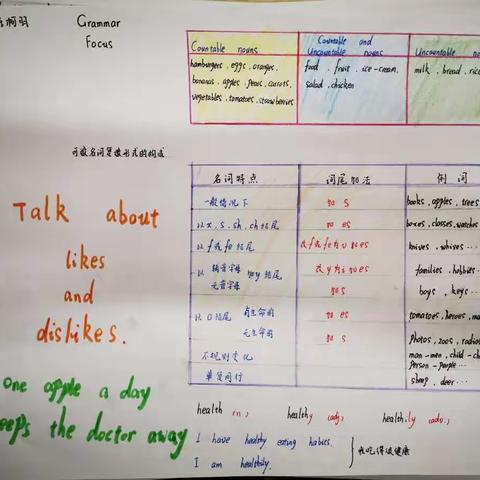 Grammar
Focus
Countable nouns
Countable and
Uncountable nouns
Uncountable
hamburgers, eggs, oranges,
bananas, apples, pears, carrots,
vegetables, tomatoes, strawberries
food, fruit, ice-cream,
salad, chicken
milk, bread, rice
可数名词复数形式的构成
名词特点 词尾加法 例词
一般情况下 加 s books, apples, trees
以x, s, sh, ch结尾 加 es boxes, classes, watches
以f或fe结尾 改f或fe为v加es knives, whives...
以 辅音字母 加y结尾 改y为i加es families, hobbies...
元音字母 加s boys, keys...
以o结尾 有生命的 加 es tomatoes, heroes,
无生命的 加 s photos, zoos,
不规则变化 man-men, child-
person-people...
单复同形 sheep, deer...
Talk about
likes
and
dislikes.
one apple a day
the doctor away
health (n.) healthy (adj.) healthily (adv.)
I have healthy eating habits.
I am healthily.
我吃得很健康